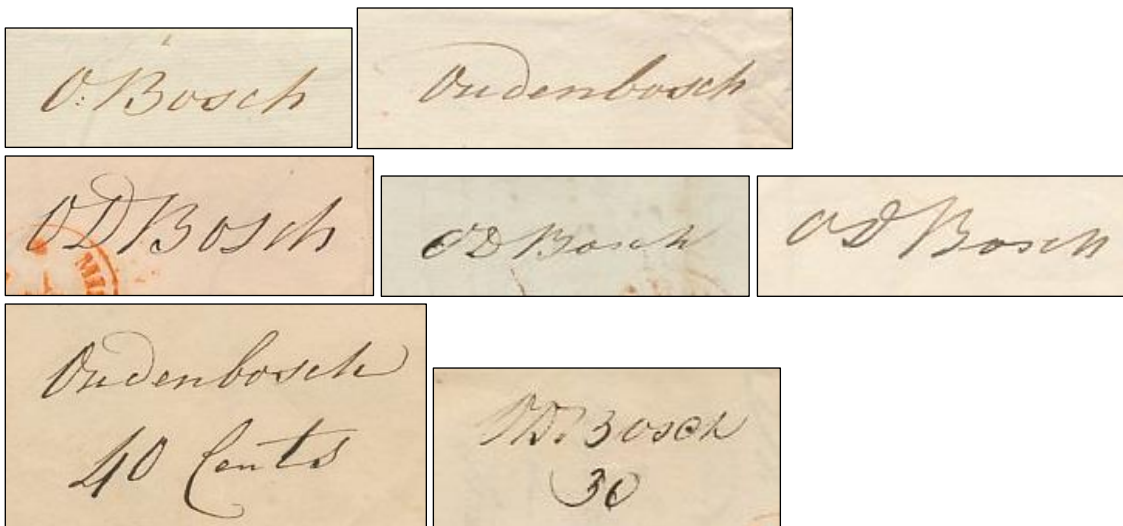 O: Bosch
Oudenbosch
OD Bosch
MI
OD Bosch
OD Bosch
Oudenbosch
40 Cents
OD: Bosch
30